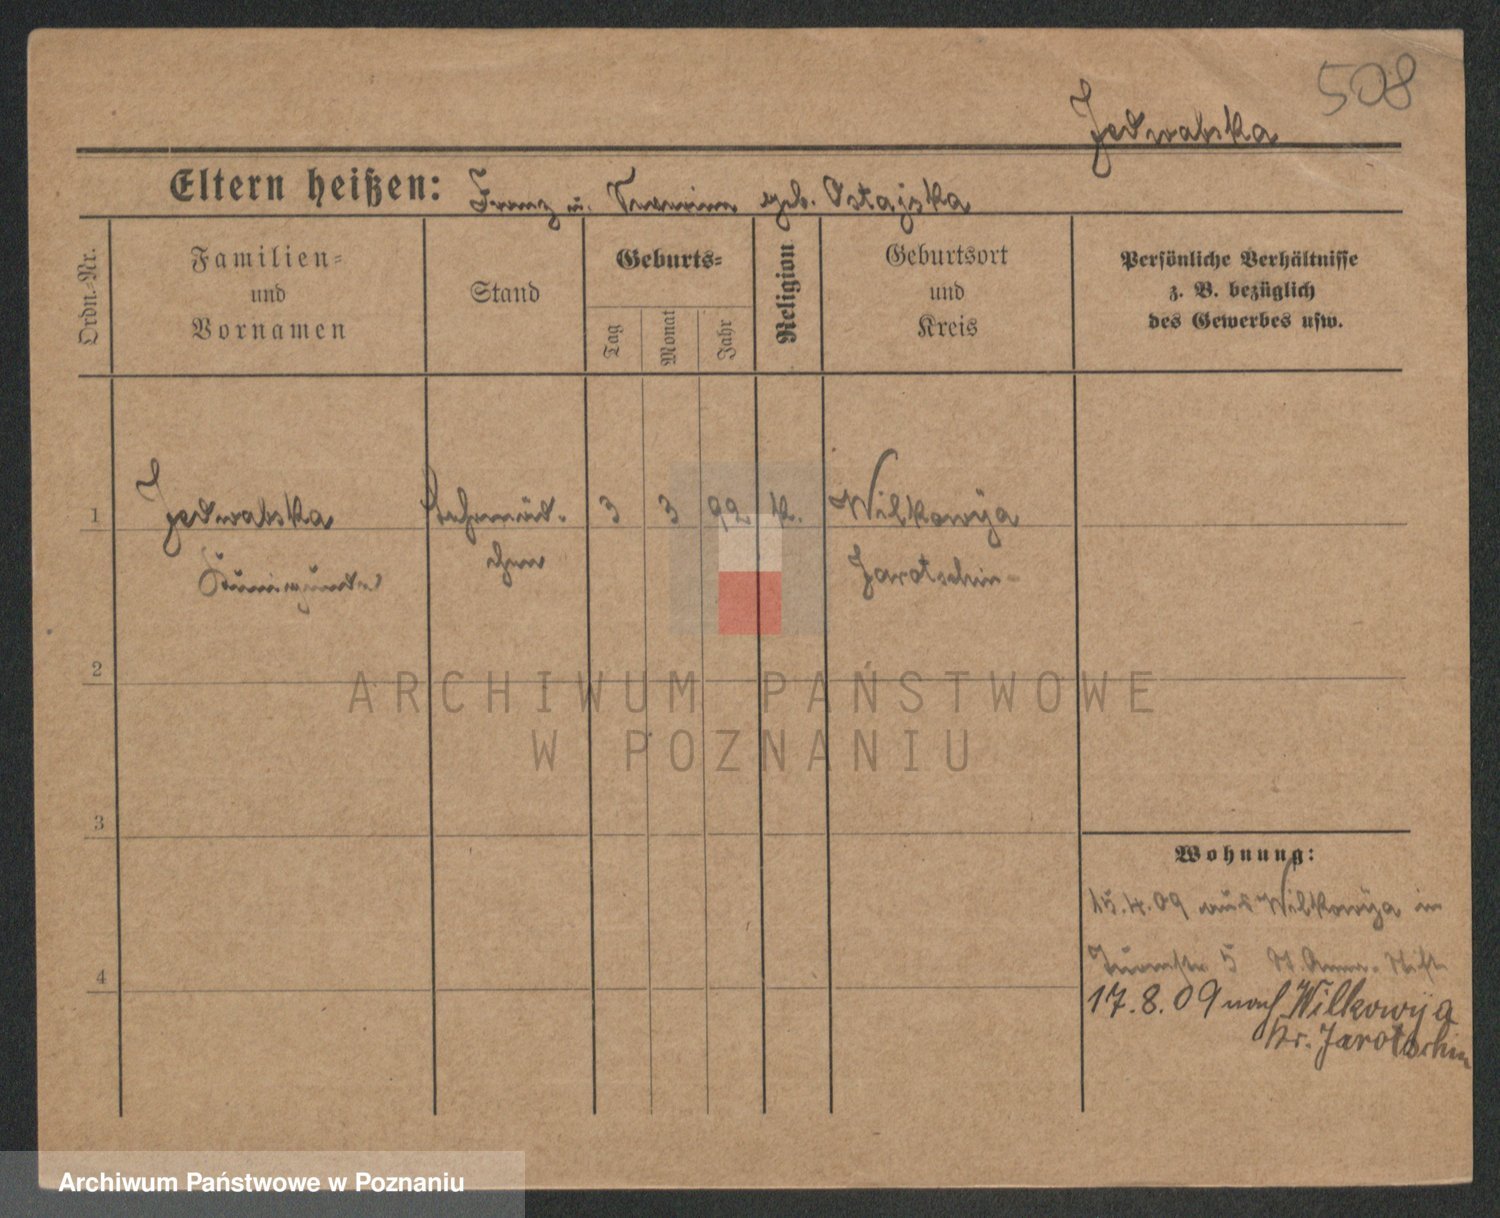 508
Jedwabska
Eltern heißen: Franz u. geb. Ostajska
Ordn.-Nr.
Familien-
und
Vornamen
Stand
Geburts-
Tag
Monat
Jahr
Religion
Geburtsort
und
Kreis
Persönliche Verhältnisse
z. B. bezüglich
des Gewerbes usw.
1 Jedwabska 3 3 92 k. Wilkowÿa
Kunigunde chen Jarotschin
2
3
4
Wohnung:
15.4.09 aus Wilkowÿa in
5 St. Anna-Stift
17.8.09 nach Wilkowÿa
Kr. Jarotschin
ARCHIWUM PAŃSTWOWE
W POZNANIU
Archiwum Państwowe w Poznaniu